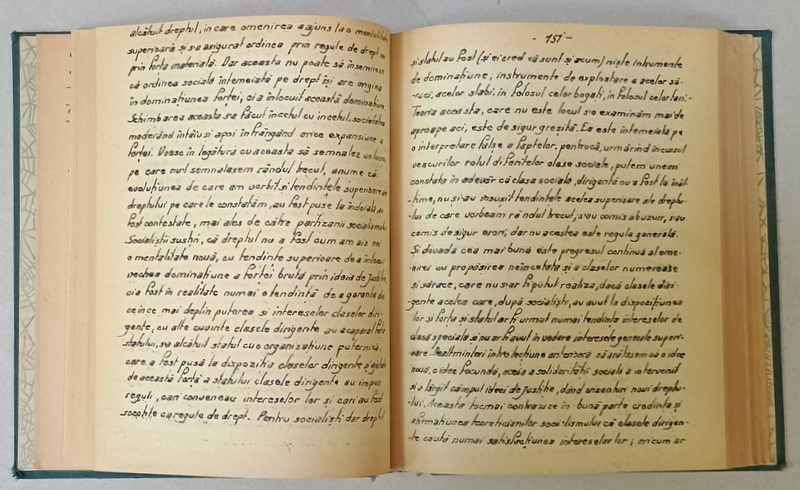 alcătuit dreptul, in care omenirea a ajuns la o mentalitate
superioară și s-a asigurat ordinea prin regule de drept nu
prin forța materială. Dar aceasta nu poate să însemneze
că ordinea socială întemeiată pe drept își are origina
în dominațiunea forței, ci a înlocuit această dominațiune.
Schimbarea aceasta s-a făcut încetul cu încetul, societatea
moderând întâiu și apoi înfrângând orice expansiune a
forței. Voesc în legătură cu aceasta să semnalez un lucru
pe care nu-l semnalasem rândul trecut, anume că
evoluțiunea de care am vorbit și tendințele superioare ale
dreptului pe care le constatăm, au fost puse la îndoială, au
fost contestate, mai ales de către partizanii socialismului.
Socialiștii susțin, că dreptul nu a fost cum am zis noi
o mentalitate nouă, cu tendințe superioare de a înlocui
vechea dominațiune a forței brute prin ideia de justiție,
ci a fost în realitate numai o tendință de a garanta din
ce in ce mai deplin puterea și interesele claselor diri-
gente, cu alte cuvinte clasele dirigente au acaparat forța
statului, s-a alcătuit statul cu o organizațiune puternică,
care a fost pusă la dispoziția claselor dirigente și grație
de această forță a statului clasele dirigente au impus
reguli, cari conveneau intereselor lor și cari au fost
socotite ca regule de drept. Pentru socialiști dar dreptul
- 151 -
și statul au fost (și ei cred că sunt și acum) niște intrumente
de dominațiune, instrumente de exploatare a celor să-
-raci, acelor slabi, în folosul celor bogați, în folosul celor tari.-
Teoria aceasta, care nu este locul s-o examinăm mai de
aproape aci, este de sigur greșită. Ea este întemeiată pe
o interpretare falsă a faptelor, pentrucă, urmărind în cursul
veacurilor rolul diferitelor clase sociale, putem uneori
constata în adevăr că clasa socială, dirigentă nu a fost la înăl-
-țime, nu și-au însușit tendințele acelea superioare ale dreptu-
-lui de care vorbeam rândul trecut, s-au comis abuzuri, s-au
comis de sigur erori, dar nu acestea este regula generală.
Și dovada cea mai bună este progresul continuă al ome-
-nirei cu propășirea neîncetată și a claselor numeroase
și sărace, care nu s-iar fi putut realiza, dacă clasele diri-
-gente acelea care, după socialiști, au avut la dispozițiunea
lor și forța și statul ar fi urmat numai tendința intereselor de
clasă speciale și nu ar fi avut în vedere interesele generale superi-
oare. Dealtminteri intr-o lecțiune anterioară că arătasem că o idee
nouă, o idee fecundă, aceia a solidarității sociale a intervenit
și a lărgit câmpul ideei de justiție, dând orizonturi noui dreptu-
-lui. Aceasta tocmai contrazice în bună parte credința și
afirmațiunea teoreticianilor socialismului că clasele dirigen-
-te caută numai satisfacțiunea intereselor lor; oricum ar